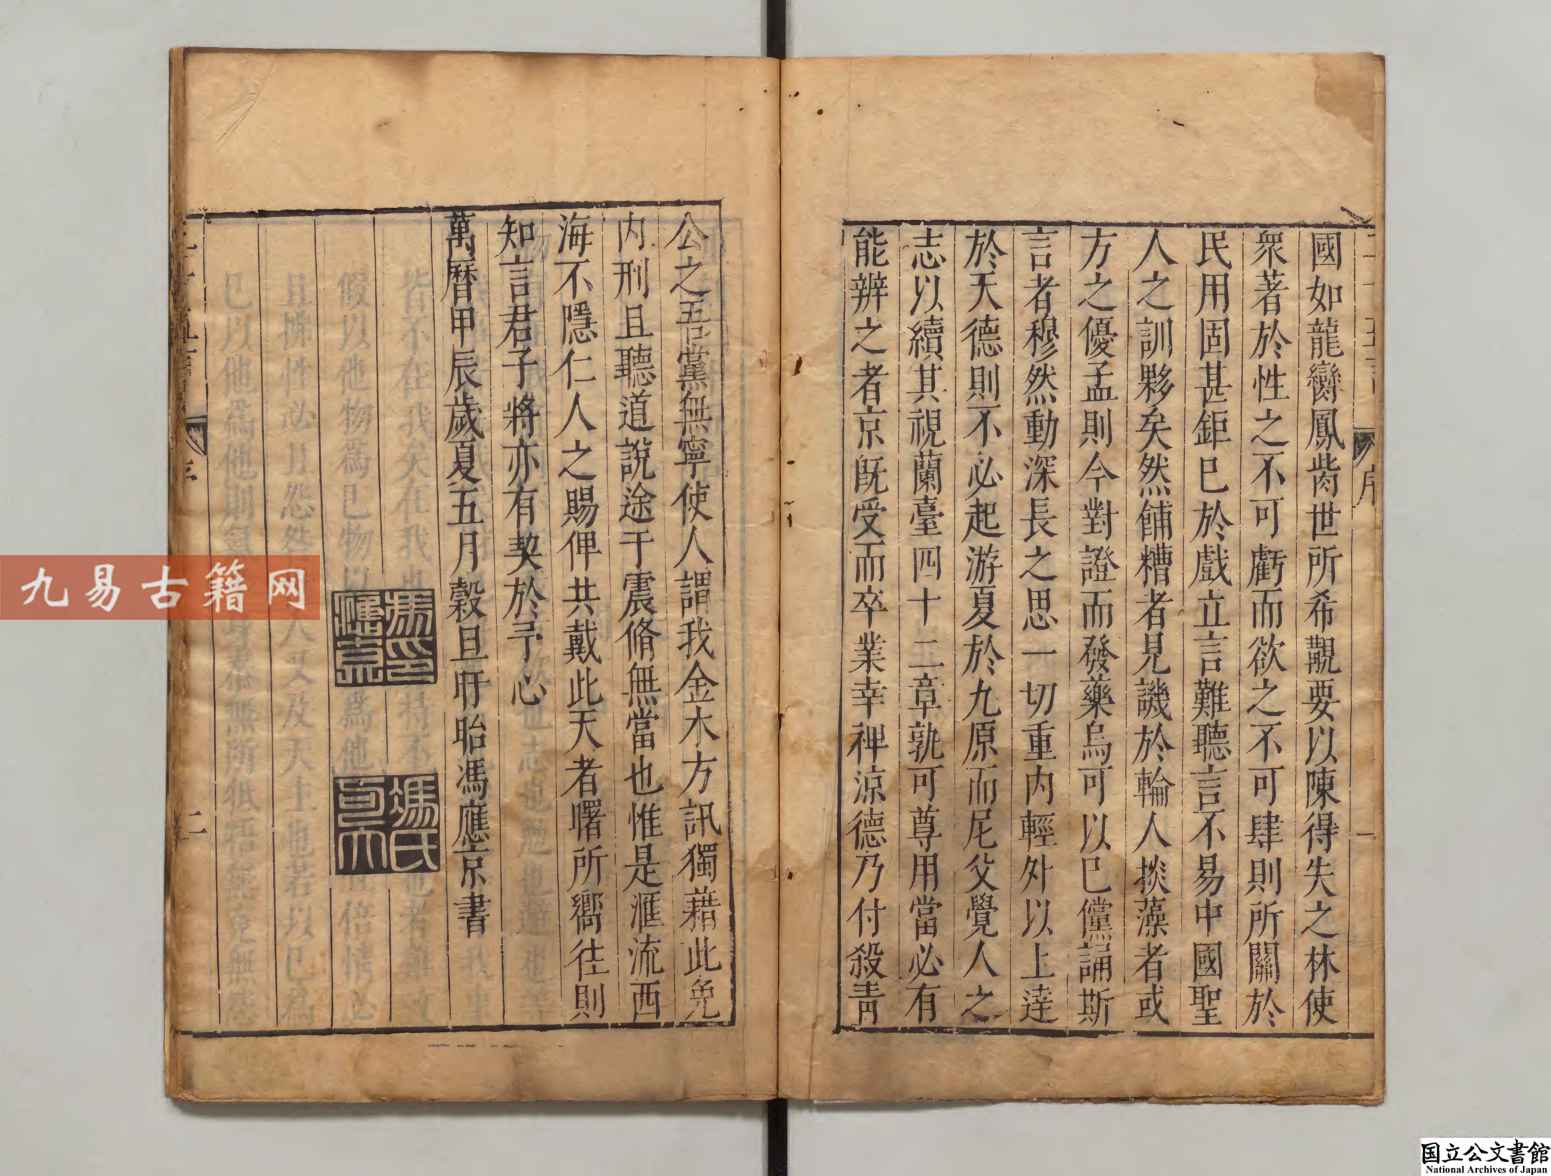 國如龍鸞鳳喾世所希覯要以陳得失之林使
衆著於性之不可虧而欲之不可肆則所關於
民用固甚鉅已於戲立言難聽言不易中國聖
人之訓夥矣然餔糟者見譏於輪人掞藻者或
方之優孟則今對證而發藥烏可以已儻誦斯
言者穆然動深長之思一切重内輕外以上達
於天德則不必起游夏於九原而尼父覺人之
志以續其視蘭臺四十二章孰可尊用當必有
能辨之者京旣受而卒業幸裨涼德乃付殺靑
序
公之吾黨無寧使人謂我金木方訊獨藉此免
内刑且聽道說途于震脩無當也惟是滙流西
海不隱仁人之賜俾共戴此天者曙所嚮往則
知言君子將亦有契於予心
萬曆甲辰歲夏五月穀旦盱眙馮應京書
馮氏
二
九易古籍网
国立公文書館
National Archives of Japan